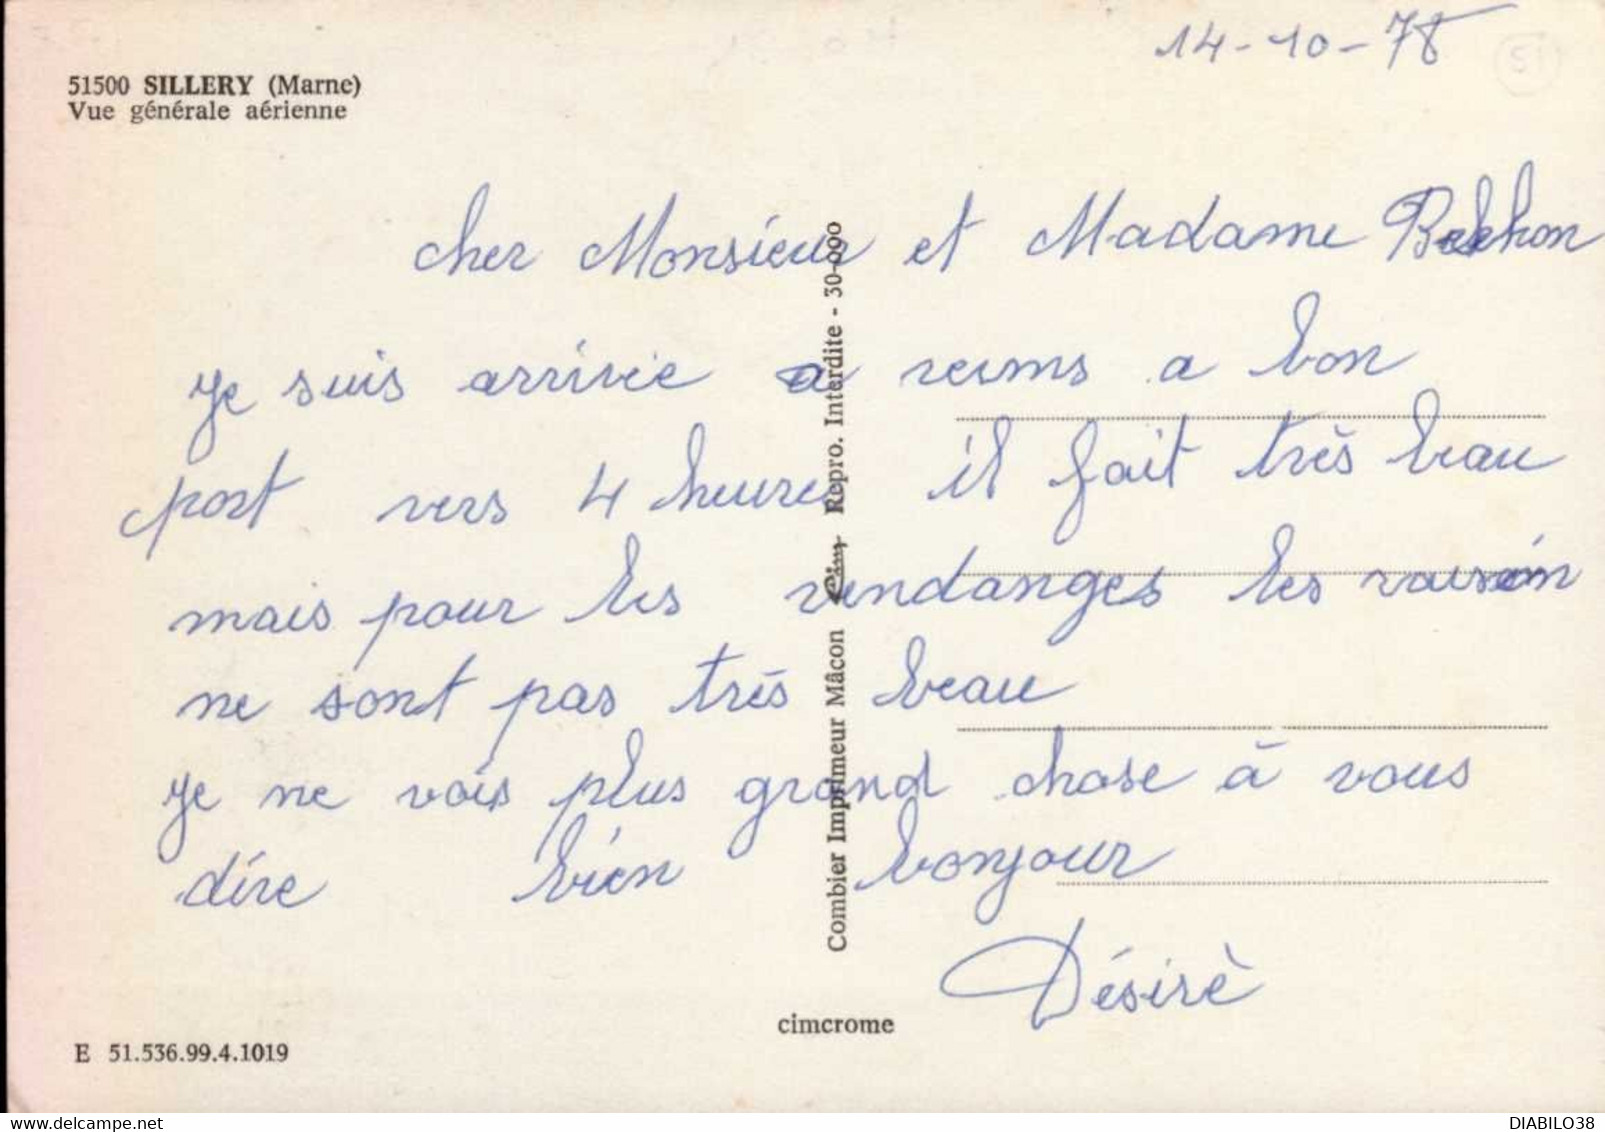 14-10-78
51
51500 SILLERY (Marne)
Vue générale aérienne
cher Monsieur et Madame
je suis arrivée a reims a bon
port vers 4 heures il fait très beau
mais pour les vendanges les raisin
ne sont pas très beau
je ne vois plus grand chose à vous
dire bien bonjour
Désirè
Combier Imprimeur Mâcon Cim Repro. Interdite - 30-090
cimcrome
E 51.536.99.4.1019
DIABILO38